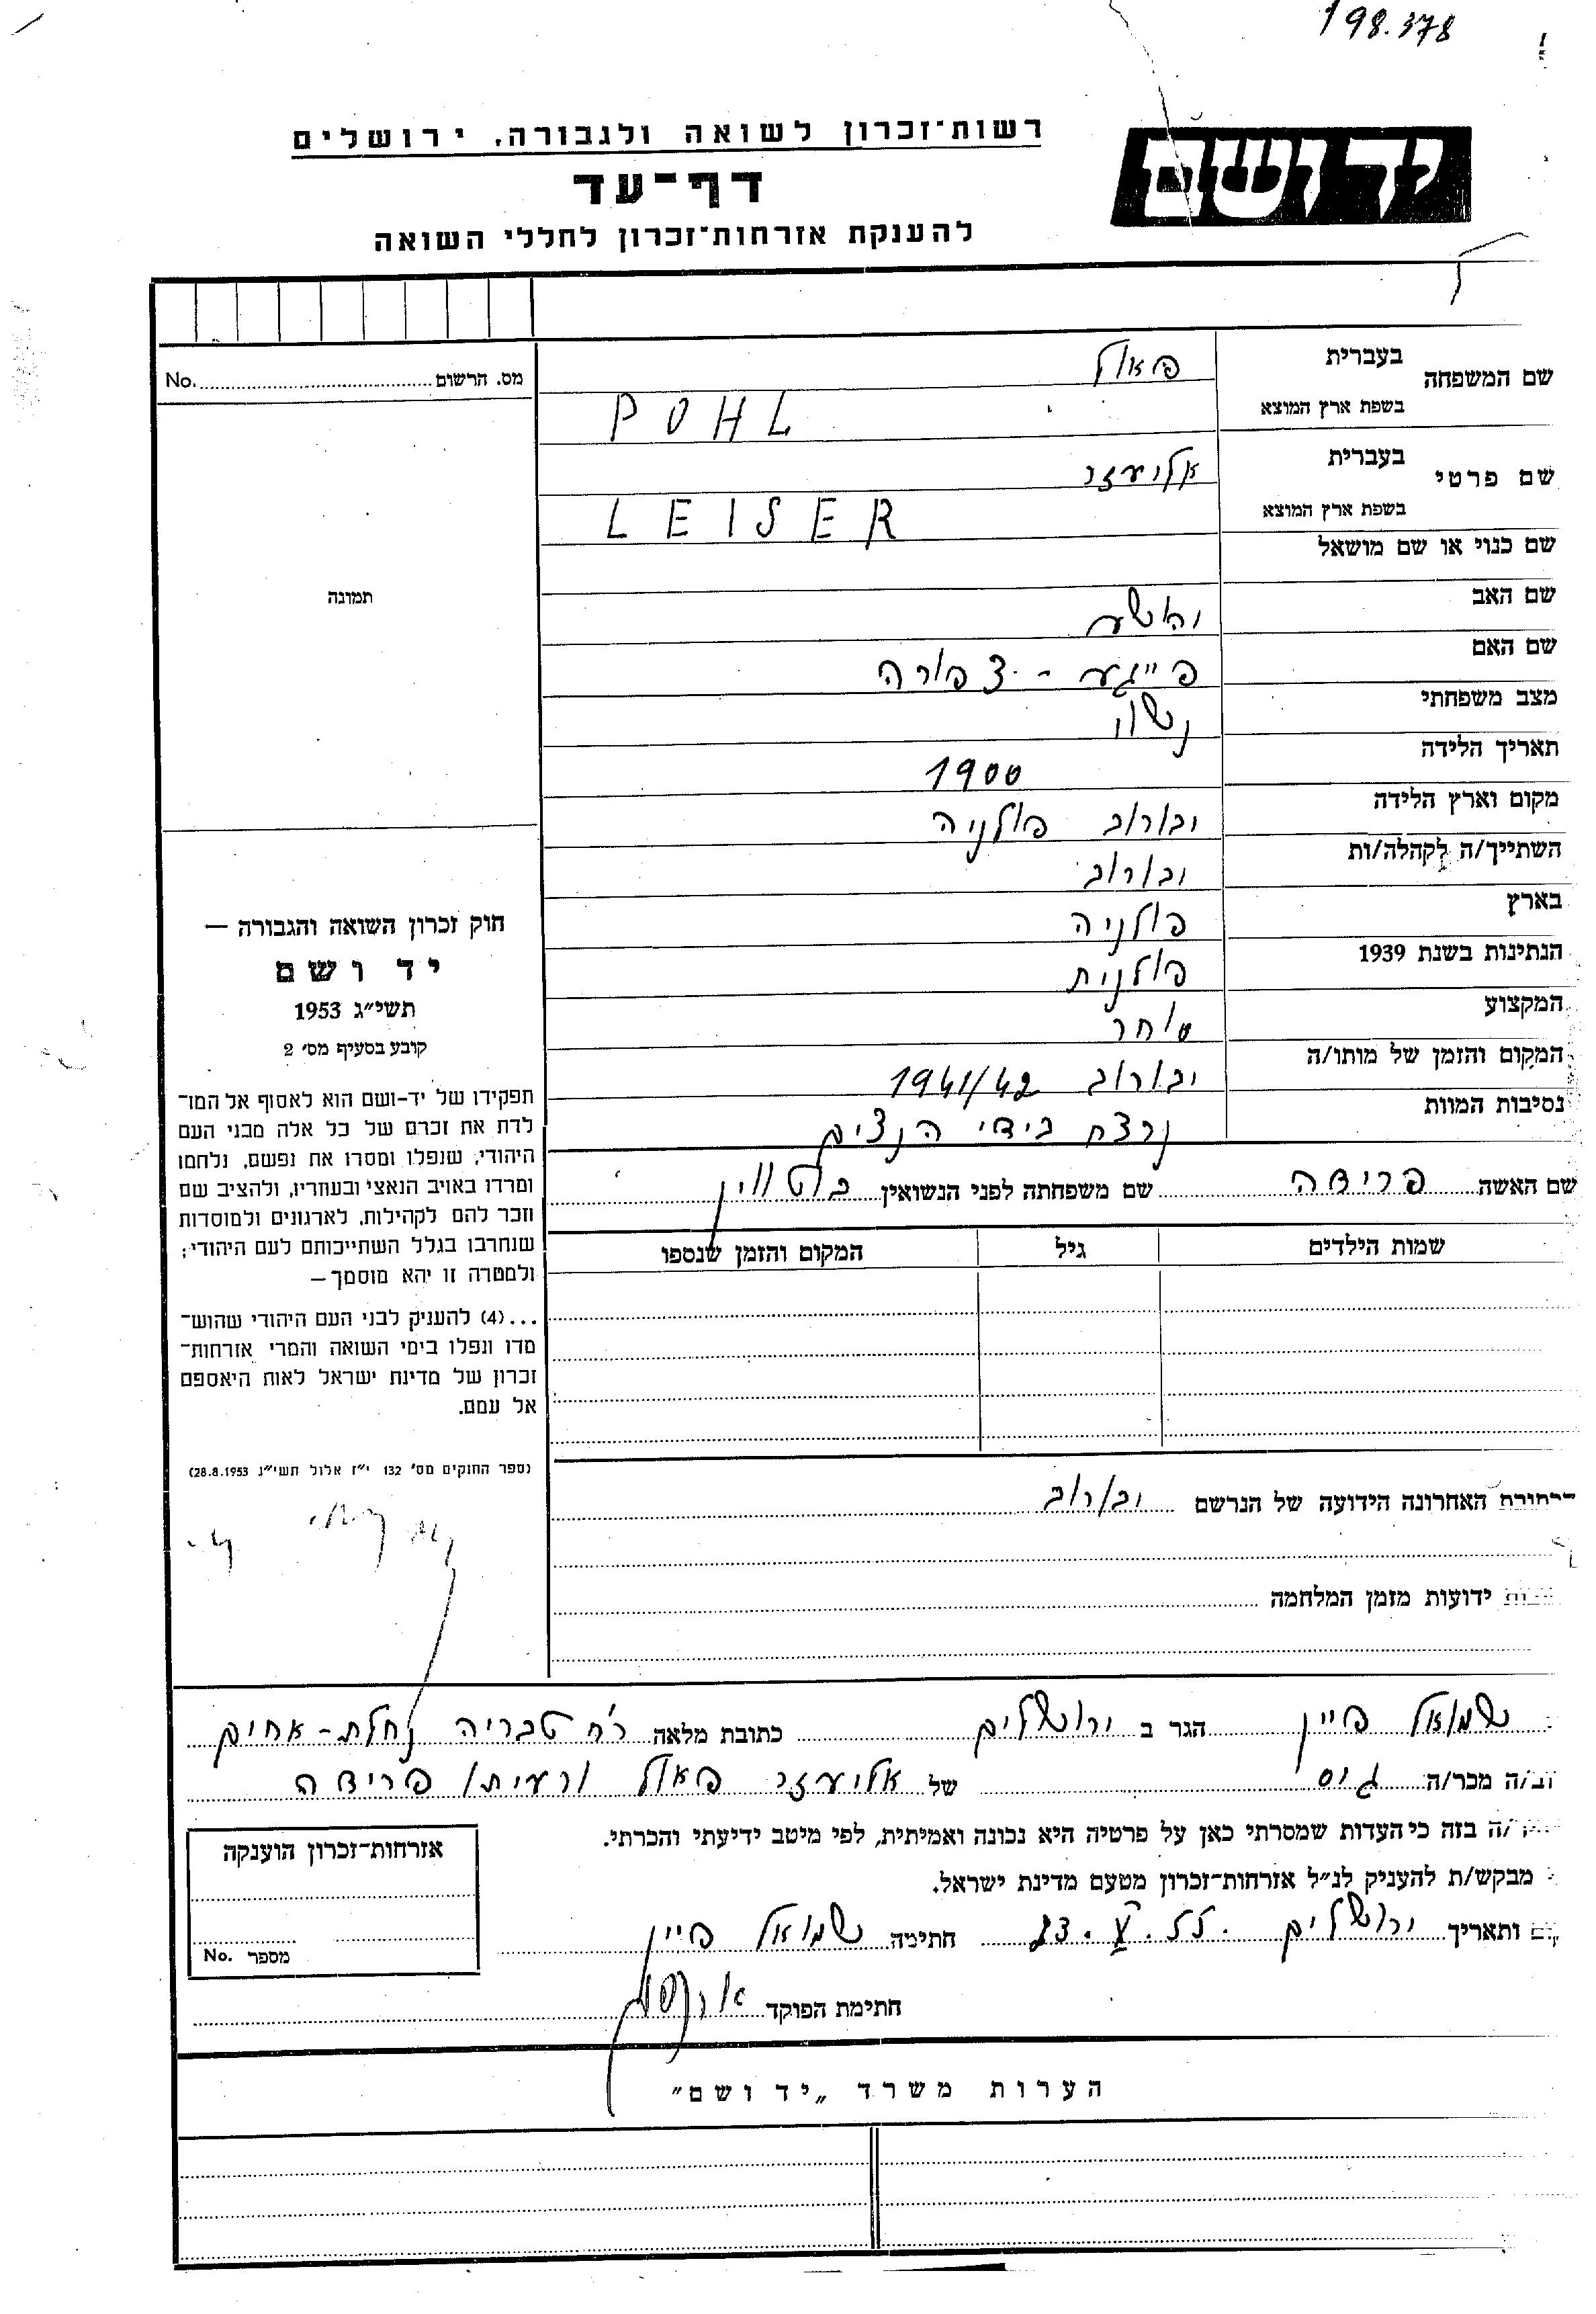 198.378
יד ושם
רשות־זכרון לשואה ולגבורה, ירושלים
דף־עד
להענקת אזרחות־זכרון לחללי השואה
מס. הרשום No.
שם המשפחה בעברית פאול
בשפת ארץ המוצא POHL
שם פרטי בעברית אליעזר
בשפת ארץ המוצא LEISER
שם כנוי או שם מושאל
שם האב
שם האם פייגע - צפורה
מצב משפחתי נשוי
תאריך הלידה 1900
מקום וארץ הלידה יבורוב פולניה
השתייך/ה לקהלה/ות יבורוב
בארץ פולניה
הנתינות בשנת 1939 פולנית
המקצוע סוחר
המקום והזמן של מותו/ה יבורוב 1941/42
נסיבות המוות נרצח בידי הנצים
שם האשה פרידה שם משפחתה לפני הנשואין
שמות הילדים גיל המקום והזמן שנספו
תמונה
חוק זכרון השואה והגבורה —
יד ושם
תשי״ג 1953
קובע בסעיף מס׳ 2
תפקידו של יד-ושם הוא לאסוף אל המו־
לדת את זכרם של כל אלה מבני העם
היהודי, שנפלו ומסרו את נפשם, נלחמו
ומרדו באויב הנאצי ובעוזריו, ולהציב שם
וזכר להם לקהילות, לארגונים ולמוסדות
שנחרבו בגלל השתייכותם לעם היהודי;
ולמטרה זו יהא מוסמך—
...(4) להעניק לבני העם היהודי שהוש־
מדו ונפלו בימי השואה והמרי אזרחות־
זכרון של מדינת ישראל לאות היאספם
אל עמם.
(ספר החוקים מס׳ 132 י״ז אלול תשי״ג 28.8.1953)
האחרונה הידועה של הנרשם יבורוב
ידועות מזמן המלחמה
שמואל פיין הגר ב ירושלים כתובת מלאה רח טבריה נחלת-אחים
מכר/ה גיס של אליעזר פאול ורעיתו פרידה
/ה בזה כי העדות שמסרתי כאן על פרטיה היא נכונה ואמיתית, לפי מיטב ידיעתי והכרתי.
מבקש/ת להעניק לנ״ל אזרחות־זכרון מטעם מדינת ישראל.
ותאריך ירושלים 23.V.55. חתימה שמואל פיין
אזרחות־זכרון הוענקה
מספר No.
חתימת הפוקד
הערות משרד „יד ושם״